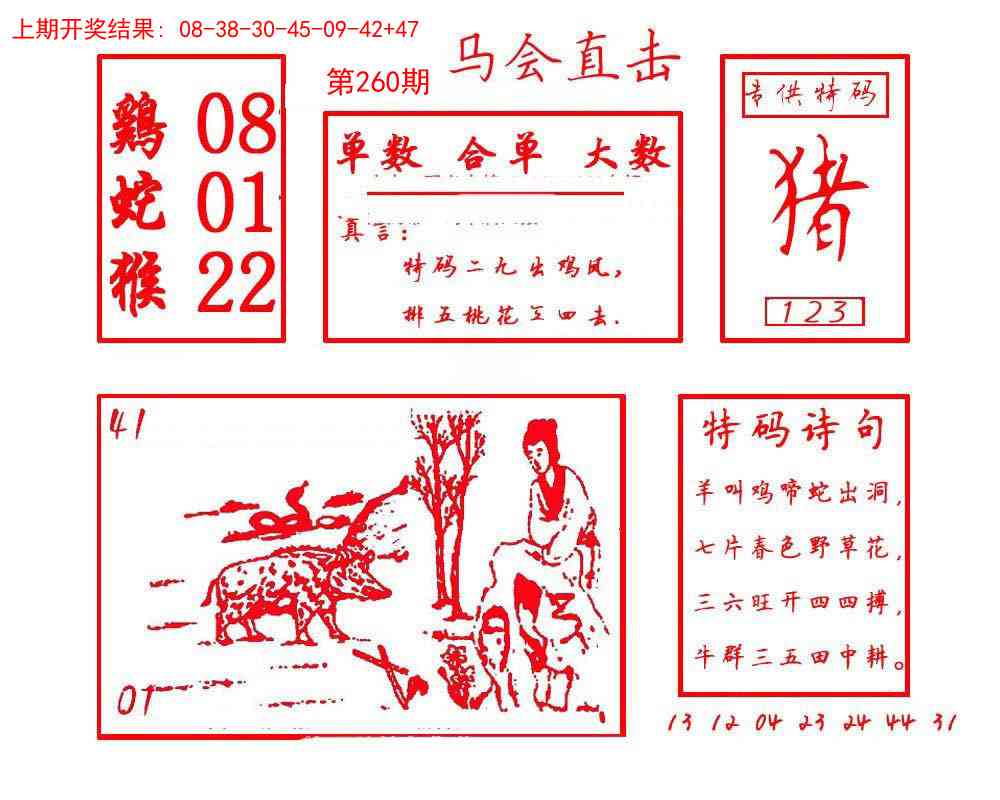 上期开奖结果: 08-38-30-45-09-42+47
第260期
马会直击
鷄 08
蛇 01
猴 22
单数 合单 大数
真言:
特码二九出鸡凤,
排五桃花三四去.
专供特码
猪
123
41
01
特码诗句
羊叫鸡啼蛇出洞,
七片春色野草花,
三六旺开四四搏,
牛群三五田中耕。
13 12 04 23 24 44 31